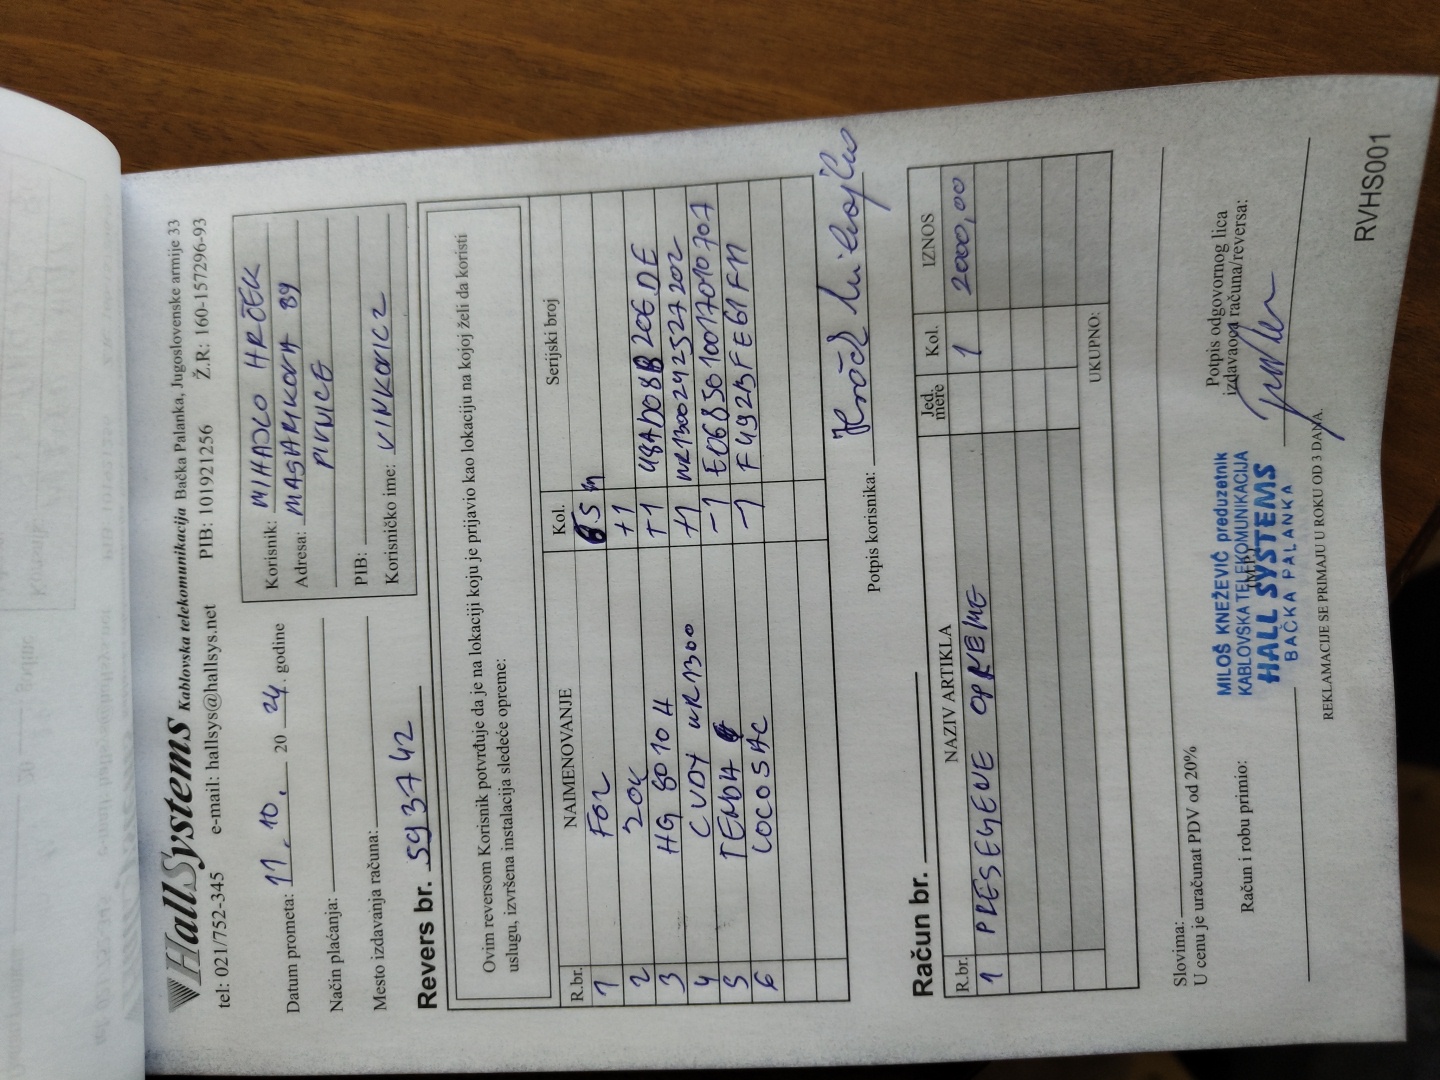 HallSystems Kablovska telekomunikacija Bačka Palanka, Jugoslovenske armije 33
tel: 021/752-345 e-mail: hallsys@hallsys.net PIB: 101921256 Ž.R: 160-157296-93
Datum prometa: 11. 10. 20 24. godine
Način plaćanja:
Mesto izdavanja računa:
Korisnik: MIHAJLO HRČEK
Adresa: MASARIKOVA 89
PIVNICE
PIB:
Korisničko ime: VINKOVIC2
Revers br. 593742
Ovim reversom Korisnik potvrđuje da je na lokaciji koju je prijavio kao lokaciju na kojoj želi da koristi
uslugu, izvršena instalacija sledeće opreme:
R.br. NAIMENOVANJE Kol. Serijski broj
1 FO2 5 m
2 ZOK +1
3 HG 8010 H +1 48AD08B206DE
4 CUDY WR1300 +1 WR13002425272702
5 TENDA -1 E0685010017010707
6 LOCO 5AC -1 F4923FE61F11
Potpis korisnika: Hrček Mihajlo
Račun br.
R.br. NAZIV ARTIKLA Jed. mere Kol. IZNOS
1 PRESEGENJE OPREME 1 2000,00
UKUPNO:
Slovima:
U cenu je uračunat PDV od 20%
Račun i robu primio:
MILOŠ KNEŽEVIĆ preduzetnik
KABLOVSKA TELEKOMUNIKACIJA
HALL SYSTEMS
BAČKA PALANKA
Potpis odgovornog lica
izdavaoca računa/reversa:
REKLAMACIJE SE PRIMAJU U ROKU OD 3 DANA.
RVHS001